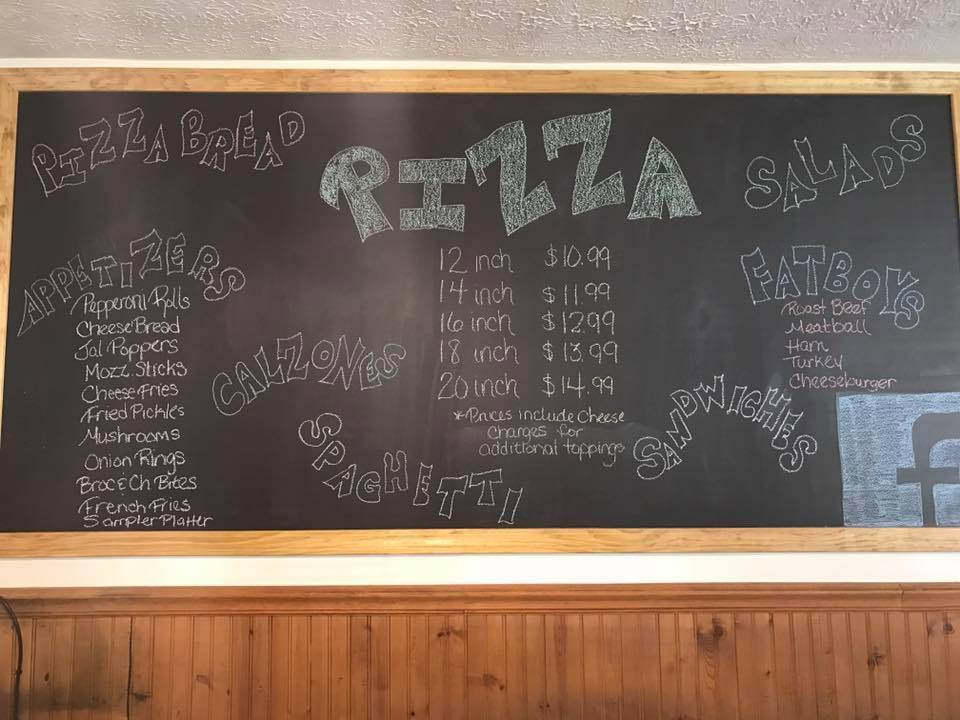 PIZZA BREAD
PIZZA
SALADS
APPETIZERS
Pepperoni Rolls
Cheese Bread
Jal Poppers
Mozz. Sticks
Cheese Fries
Fried Pickles
Mushrooms
Onion Rings
Broc & Ch Bites
French Fries
Sampler Platter
CALZONES
SPAGHETTI
12 inch $10.99
14 inch $11.99
16 inch $12.99
18 inch $13.99
20 inch $14.99
*Prices include Cheese
Charges for
additional toppings
FATBOYS
Roast Beef
Meatball
Ham
Turkey
Cheeseburger
SANDWICHES
f